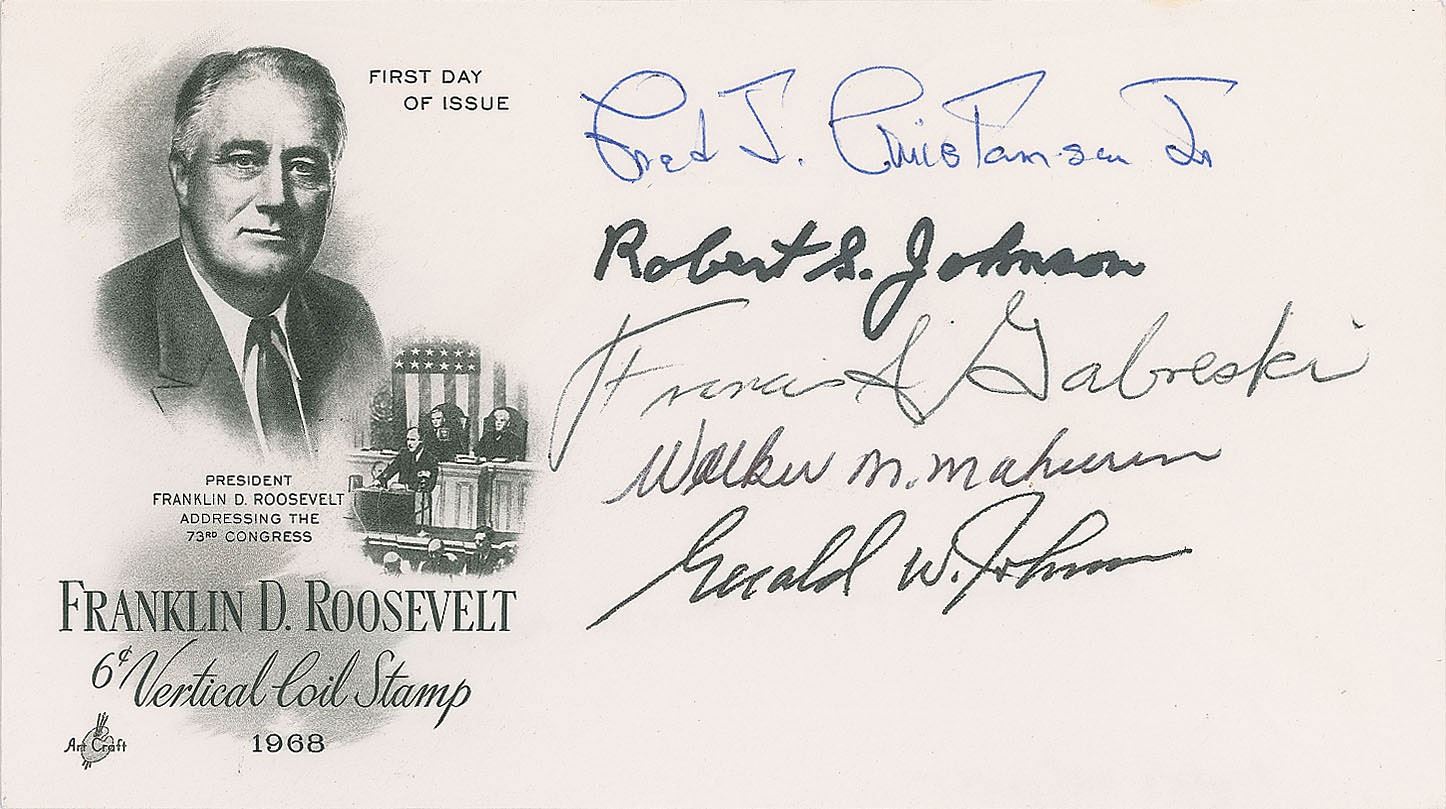 FIRST DAY
OF ISSUE
Fred J. Christensen Jr
Robert S. Johnson
Francis S Gabreski
Walker M. Mahurin
Gerald W. Johnson
PRESIDENT
FRANKLIN D. ROOSEVELT
ADDRESSING THE
73RD CONGRESS
FRANKLIN D. ROOSEVELT
6¢ Vertical Coil Stamp
Art Craft
1968